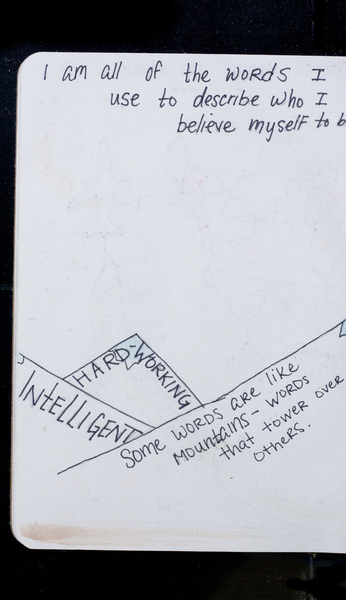 I am all of the words I
use to describe who I
believe myself to b
HARD-WORKING
INTELLIGENT
Some words are like
Mountains- words
that tower over
others.